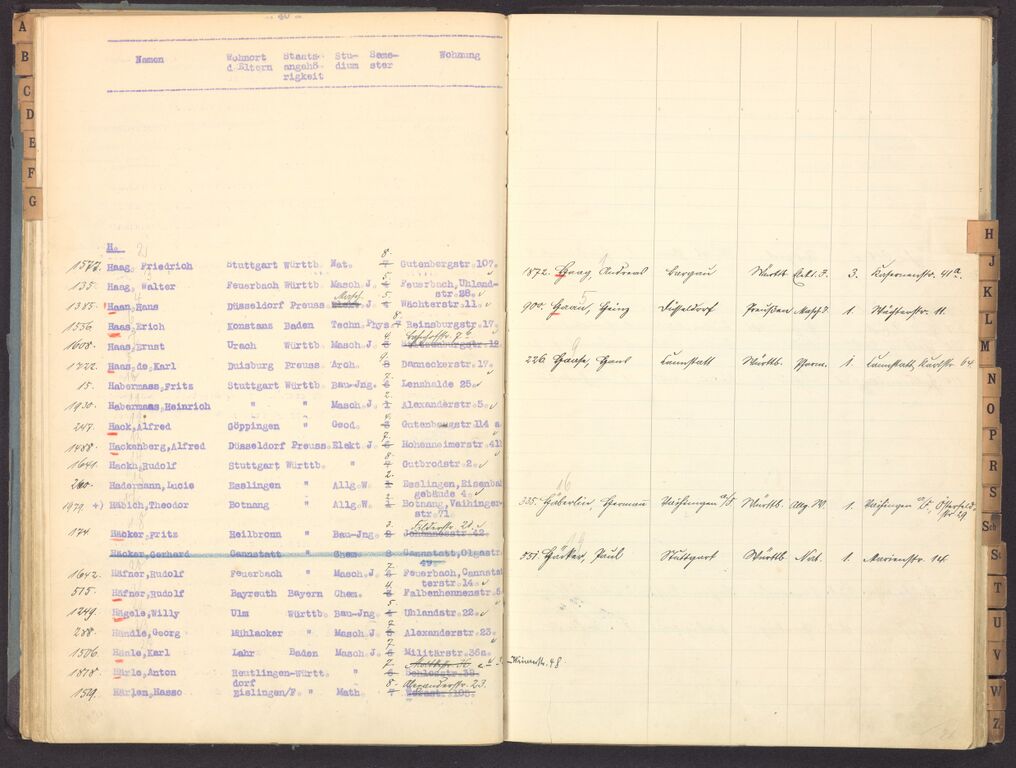 - 40 -
Namen Wohnort d.Eltern Staatsangehörigkeit Studium Semester Wohnung
H.
1572. Haag, Friedrich Stuttgart Württb. Nat. 8 Gutenbergstr.107.
135. Haag, Walter Feuerbach Württb. Masch.J. 5 Feuerbach,Uhlandstr.28.
1385. Haan,Hans Düsseldorf Preuss. Masch. 5 Wächterstr.11.
1536 Haas,Erich Konstanz Baden Techn.Phys. 8. Reinsburgstr.17.
1608. Haas,Ernst Urach Württb. Masch.J.
1722. Haas,de,Karl Duisburg Preuss. Arch. Danneckerstr.17.
15. Habermass,Fritz Stuttgart Württb. Bau-Jng. Lenzhalde 25.
1930. Habermaas,Heinrich " " Masch.J. Alexanderstr.5.
247. Hack,Alfred Göppingen " Geod. Gutenbergstr.114 a
1488. Hackenberg,Alfred Düsseldorf Preuss. Elekt.J. Hohenheimerstr.41
1641. Hackh,Rudolf Stuttgart Württb. " 8 Gutbrodstr.2.
Hademann,Lucie Esslingen " Allg.W. 2 Esslingen,Eisenbahngebäude 4.
1979 +) Häbich,Theodor Botnang " Allg.W. 2 Botnang,Vaihingerstr.71.
174 Häcker,Fritz Heilbronn " Bau-Jng. 3. Filderstr. 21. Johannesstr.42.
Häcker,Gerhard Cannstatt " Chem. 8 Cannstatt,Olgastr.
49.
1642. Häfner,Rudolf Feuerbach " Masch.J. 7. Feuerbach,Cannstatterstr.14.
515. Häfner,Rudolf Bayreuth Bayern Chem. 4. Falbenhennenstr.
1249. Hägele,Willy Ulm Württb. Bau-Jng. 5 Uhlandstr.22.
288. Händle,Georg Mühlacker " Masch.J. 7 Alexanderstr.23.
1506. Hänle,Karl Lahr Baden Masch.J. 7 Militärstr.36a.
1878. Härle,Anton Reutlingendorf Württb. " 7. Schlosstr.38.
1519. Härlen,Hasso Eislingen/F. " Math. 8. Alexanderstr. 23. Werastr.103.
1872. Haag, Andreas Bargau Württb. 3. Kasernenstr. 41a.
900. Haan, Heinz Düsseldorf Preußen Masch.J. 1 Wächterstr. 11.
226. Haase, Hans Cannstatt Württb. Pharm. 1. Cannstatt, Karlstr. 64.
335. Häberlin, Hermann Vaihingen a/F. Württb. Allg.W. 1. Vaihingen a/F., Osterfeldstr. 29
551. Häcker, Paul Stuttgart Württb. Nat. 1. Marienstr. 14.
A
B
C
D
E
F
G
H
J
K
L
M
N
O
P
R
S
Sch
St
T
U
V
W
Z